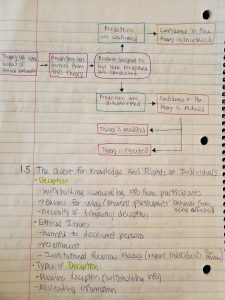 Predictions
are confirmed
Confidence in the
theory is increased
Theory about some
aspect of
social behavior
Predictions are
derived from
this theory
Research designed to
test these predictions
are conducted
Predictions are
disconfirmed
Confidence in the
theory is reduced
Theory is modified
Theory is rejected
1.5 The Quest for Knowledge and Rights on Individuals
• Deception
- withholding/concealing info from participants
- reasons for using (prevent participants' behavior from
being
- necessity of temporary deception
• Ethical Issues
- harmful to deceived persons
- recruitment
- Institutional Review Boards
• Types of Deception
- Passive deception (withholding info)
- Misleading information